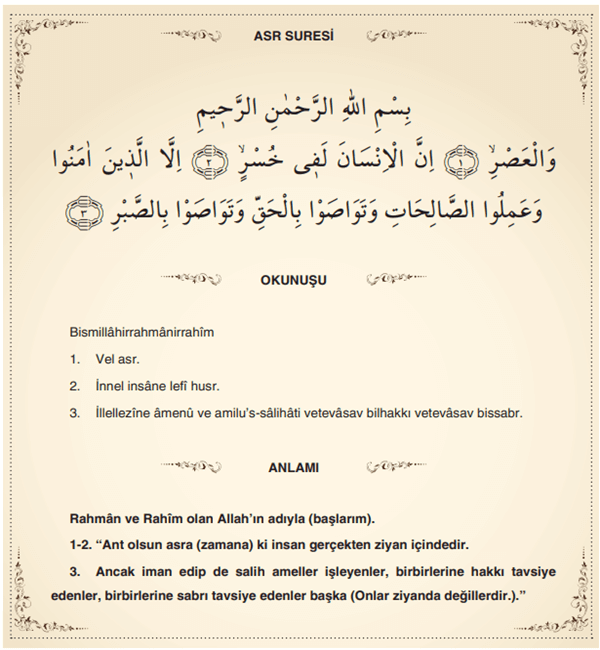 ASR SURESİ
بِسْمِ اللّٰهِ الرَّحْمٰنِ الرَّح۪يمِ
وَالْعَصْرِۙ ﴿١﴾ اِنَّ الْاِنْسَانَ لَف۪ي خُسْرٍۙ ﴿٢﴾ اِلَّا الَّذ۪ينَ اٰمَنُوا
وَعَمِلُوا الصَّالِحَاتِ وَتَوَاصَوْا بِالْحَقِّ وَتَوَاصَوْا بِالصَّبْرِ ﴿٣﴾
OKUNUŞU
Bismillâhirrahmânirrahîm
1. Vel asr.
2. İnnel insâne lefî husr.
3. İllellezîne âmenû ve amilu’s-sâlihâti vetevâsav bilhakkı vetevâsav bissabr.
ANLAMI
Rahmân ve Rahîm olan Allah’ın adıyla (başlarım).
1-2. “Ant olsun asra (zamana) ki insan gerçekten ziyan içindedir.
3. Ancak iman edip de salih ameller işleyenler, birbirlerine hakkı tavsiye
edenler, birbirlerine sabrı tavsiye edenler başka (Onlar ziyanda değillerdir.).”